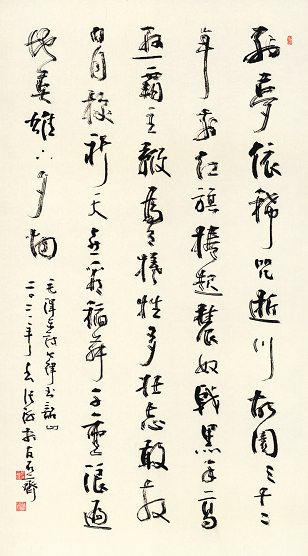 別夢依稀咒逝川故園三十二
年前紅旗捲起農奴戟黑手高
懸霸主鞭為有犧牲多壯志敢教
日月換新天喜看稻菽千重浪遍
地英雄下夕煙
毛澤東詩七律到韶山